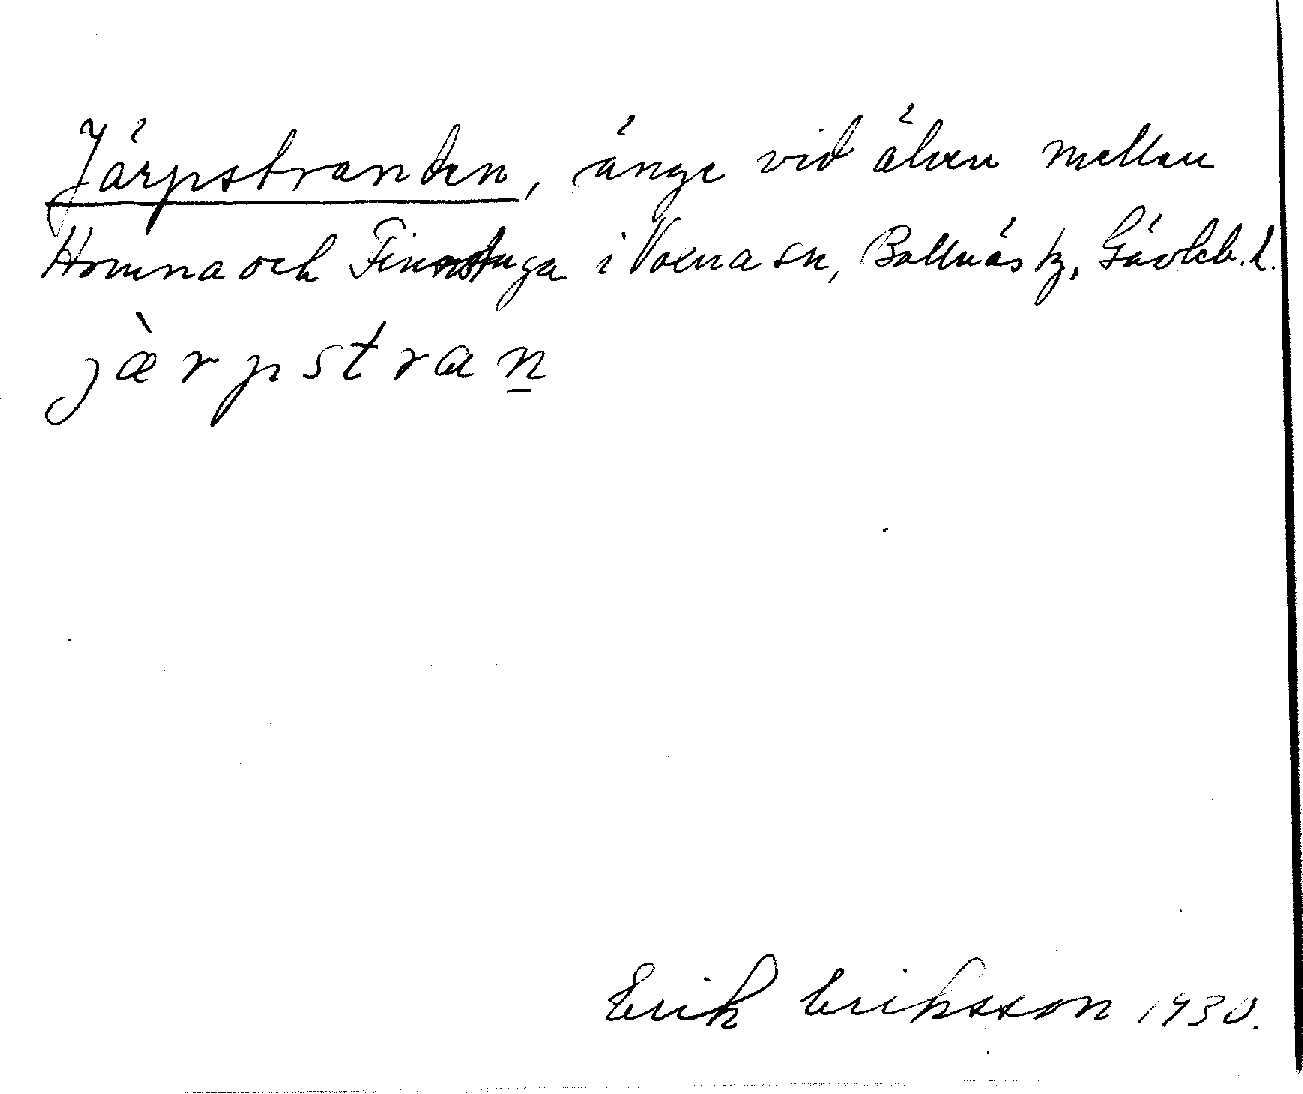 Järpstranden, änge vid älven mellan
Homna och Finnstuga i Voxna sn, Bollnäs tg, Gävleb. l.
jæ̀rpstran̲
Erik Eriksson 1930.